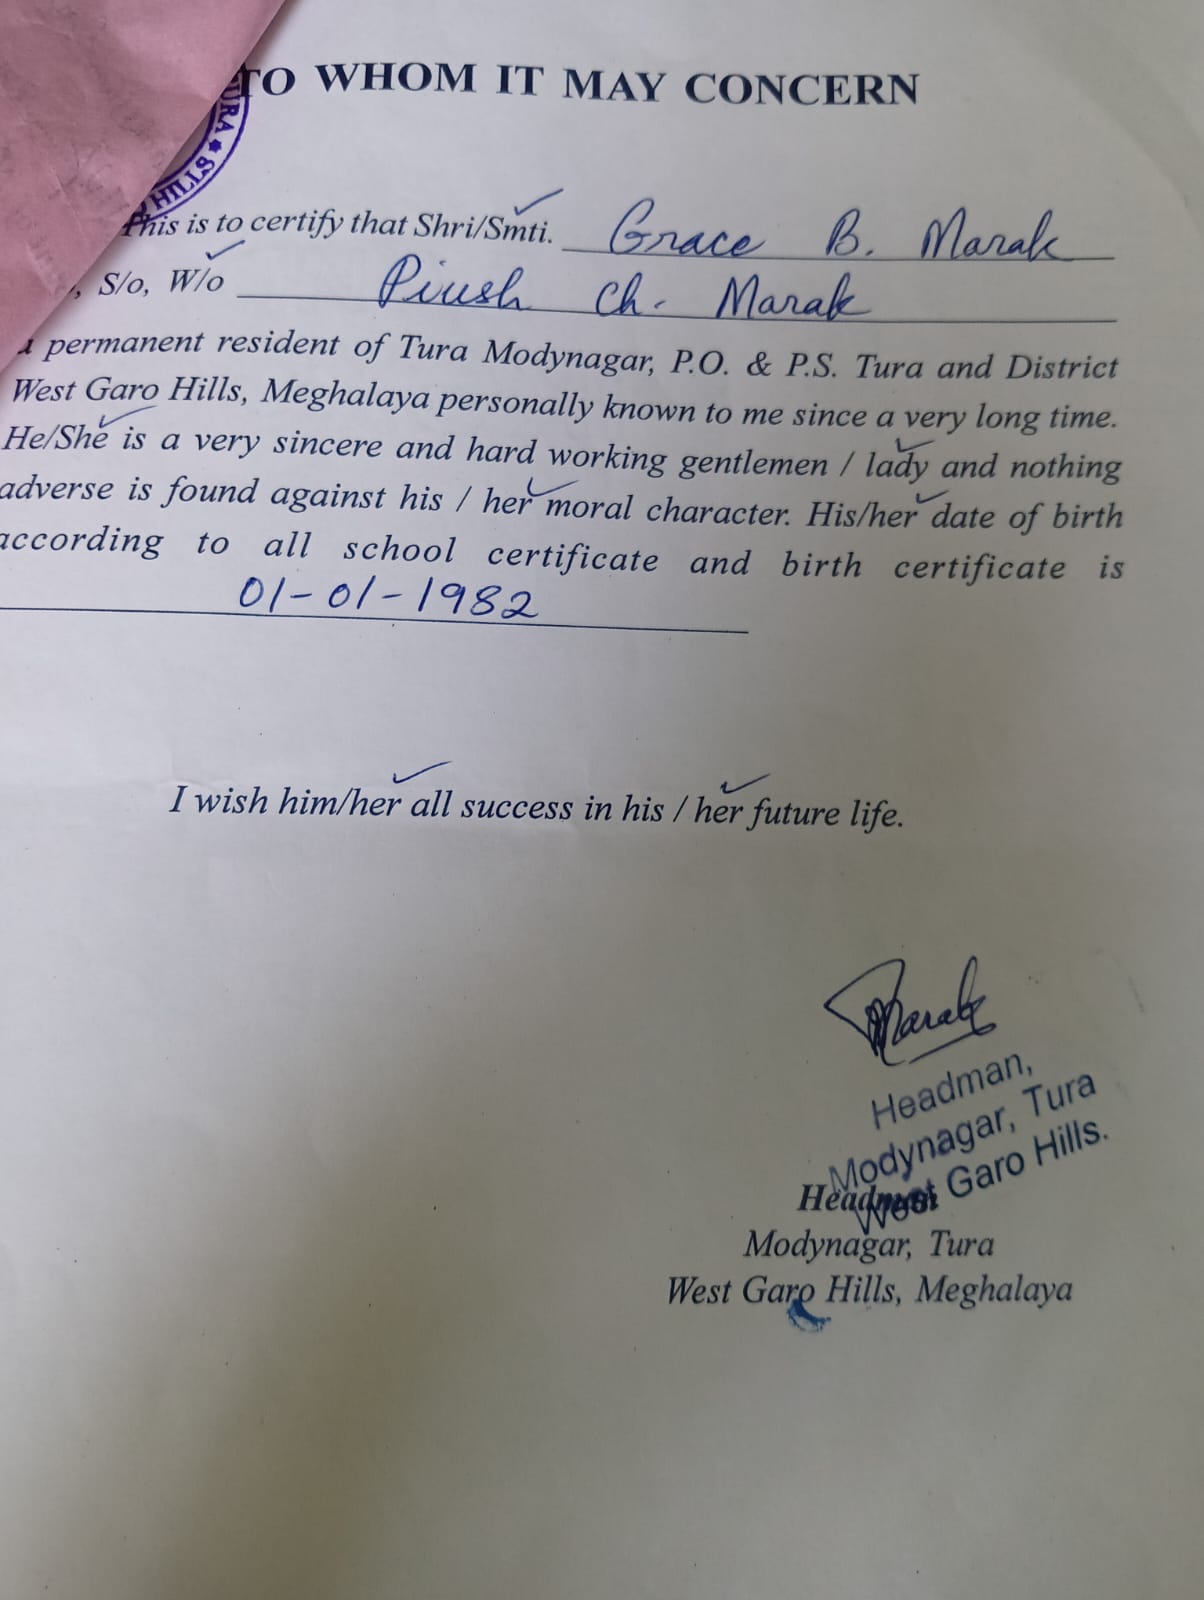 TO WHOM IT MAY CONCERN
TURA * HILLS
This is to certify that Shri/Smti. Grace B. Marak
, S/o, W/o Piush Ch. Marak
a permanent resident of Tura Modynagar, P.O. & P.S. Tura and District
West Garo Hills, Meghalaya personally known to me since a very long time.
He/She is a very sincere and hard working gentlemen / lady and nothing
adverse is found against his / her moral character. His/her date of birth
according to all school certificate and birth certificate is
01-01-1982
I wish him/her all success in his / her future life.
Marak
Headman,
Modynagar, Tura
West Garo Hills.
Headman
Modynagar, Tura
West Garo Hills, Meghalaya